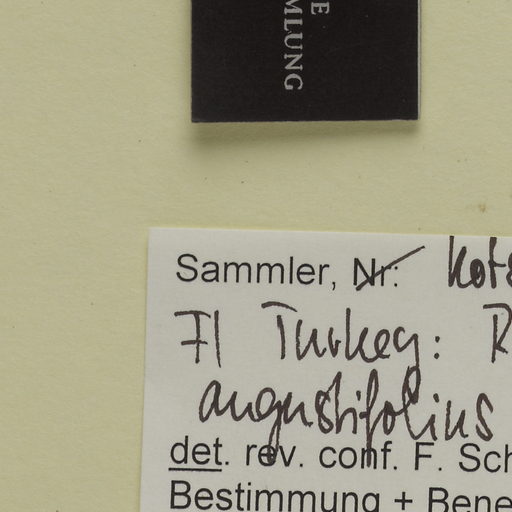 E
MLUNG
Sammler, Nr: Kots
Fl Turkey: R
angustifolius
det. rev. conf. F. Sch
Bestimmung + Bene